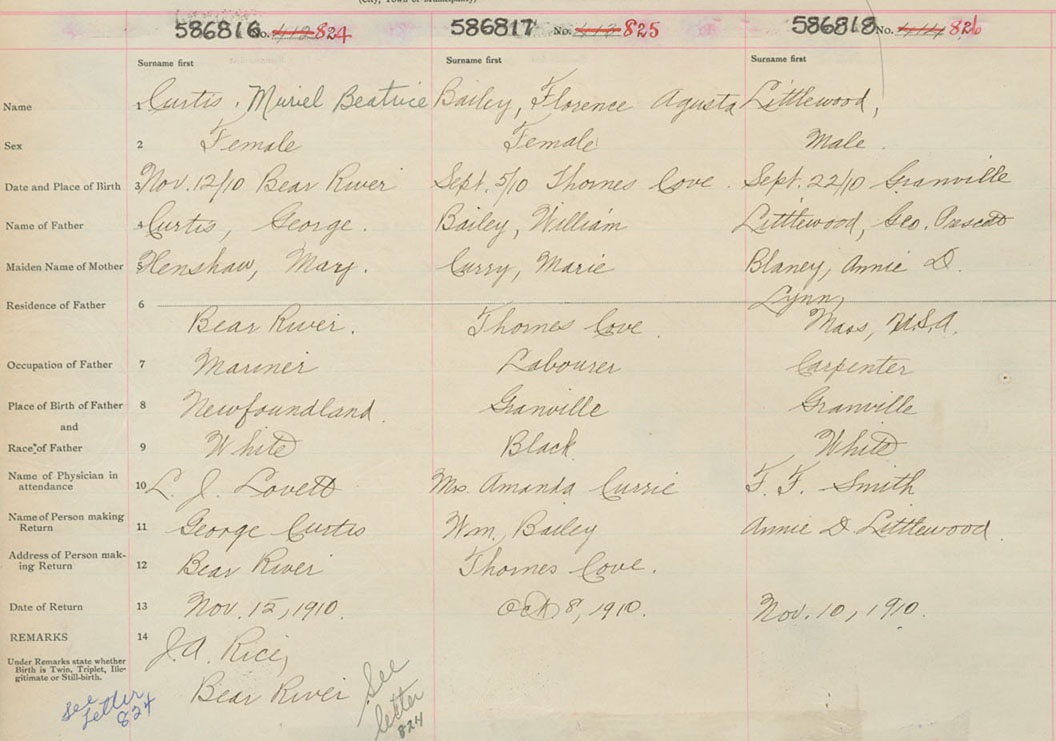 (City, Town or Municipality)
586816 No. 413 824 586817 No. 413 825 586818 No. 414 826
Surname first Surname first Surname first
Name 1 Curtis, Muriel Beatrice Bailey, Florence Agusta Littlewood,
Sex 2 Female Female Male
Date and Place of Birth 3 Nov. 12/10 Bear River Sept. 5/10 Thornes Cove. Sept. 22/10 Granville
Name of Father 4 Curtis, George. Bailey, William Littlewood, Geo. Prescott
Maiden Name of Mother 5 Henshaw, Mary. Curry, Marie Blaney, Annie D.
Residence of Father 6 Lynn,
Bear River. Thornes Cove Mass, U.S.A.
Occupation of Father 7 Mariner Labourer Carpenter
Place of Birth of Father 8 Newfoundland. Granville Granville
and
Race of Father 9 White Black White
Name of Physician in
attendance 10 L. J. Lovett Mrs. Amanda Currie F. F. Smith
Name of Person making
Return 11 George Curtis Wm. Bailey Annie D Littlewood.
Address of Person mak-
ing Return 12 Bear River Thornes Cove.
Date of Return 13 Nov. 15, 1910. Oct 8, 1910. Nov. 10, 1910.
REMARKS 14 J.A. Rice,
Under Remarks state whether
Birth is Twin, Triplet, Ille-
gitimate or Still-birth.
Bear River
see
letter
824
See
letter
824